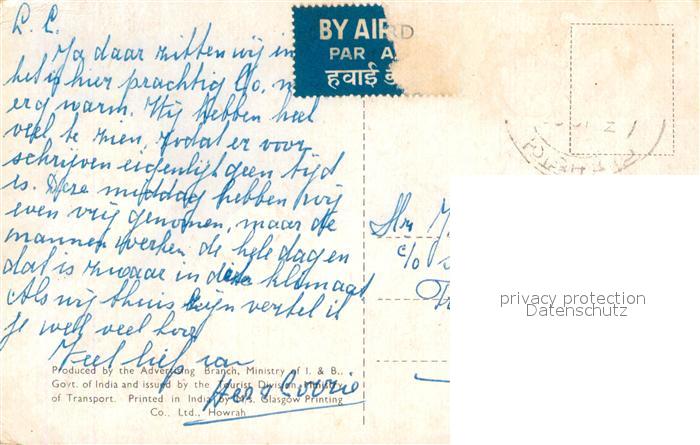 L. C.
Ja daar zitten wij in
het is hier prachtig
erg warm. Wij hebben heel
veel te zien, zodat er voor
schrijven eigenlijk geen tijd
is. Deze middag hebben wij
even vrij genomen, maar de
mannen werken de hele dag en
dat is zwaar in deze klimaat
Als wij thuis zijn vertel ik
je wel veel hoor
Veel liefs van
BY AIR
PAR A
हवाई
Mrs
c/o
Produced by the Advertising Branch, Ministry of I. & B.,
Govt. of India and issued by the Tourist Division, Ministry
of Transport. Printed in India by M/s. Glasgow Printing
Co., Ltd., Howrah.
privacy protection
Datenschutz